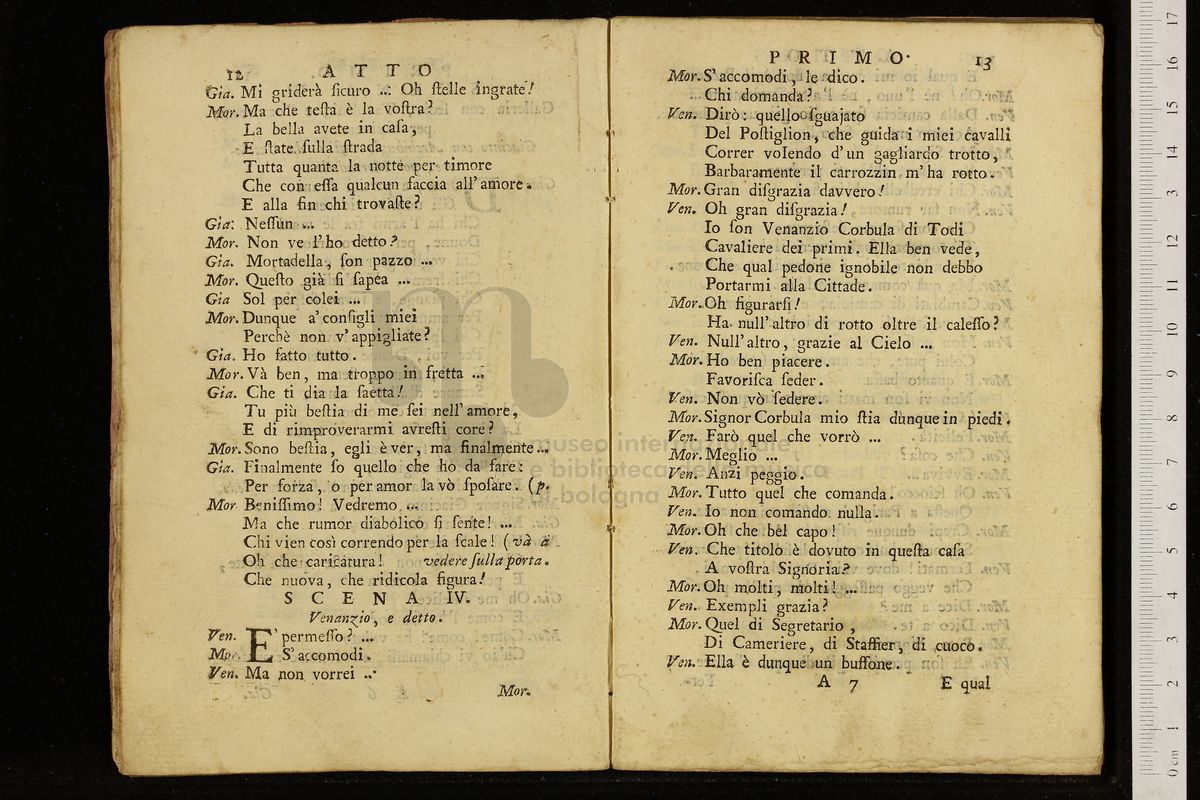 12 A T T O
Gia. Mi griderà ſicuro ... Oh ſtelle ingrate!
Mor. Ma che teſta è la voſtra?
La bella avete in caſa,
E ſtate ſulla ſtrada
Tutta quanta la notte per timore
Che con eſſa qualcun faccia all'amore.
E alla fin chi trovaſte?
Gia. Neſſun ...
Mor. Non ve l'ho detto?
Gia. Mortadella, ſon pazzo ...
Mor. Queſto già ſi ſapéa ...
Gia Sol per colei ...
Mor. Dunque a' conſigli miei
Perchè non v'appigliate?
Gia. Ho fatto tutto.
Mor. Và ben, ma troppo in fretta ...
Gia. Che ti dia la ſaetta!
Tu più beſtia di me ſei nell'amore,
E di rimproverarmi avreſti core?
Mor. Sono beſtia, egli è ver, ma finalmente ...
Gia. Finalmente ſo quello che ho da fare:
Per forza, o per amor la vò ſpoſare. (p.
Mor Beniſſimo! Vedremo ...
Ma che rumor diabolico ſi ſente! ...
Chi vien così correndo per la ſcale! (và a
Oh che caricatura! vedere ſulla porta.
Che nuova, che ridicola figura!
S C E N A IV.
Venanzio, e detto.
Ven. E' permeſſo? ...
Mor. S'accomodi.
Ven. Ma non vorrei ...
Mor.
P R I M O. 13
Mor. S'accomodi, le dico.
Chi domanda?
Ven. Dirò: quello ſguajato
Del Poſtiglion, che guida i miei cavalli
Correr volendo d'un gagliardo trotto,
Barbaramente il carrozzin m'ha rotto.
Mor. Gran diſgrazia davvero!
Ven. Oh gran diſgrazia!
Io ſon Venanzio Corbula di Todi
Cavaliere dei primi. Ella ben vede,
Che qual pedone ignobile non debbo
Portarmi alla Cittade.
Mor. Oh figurarſi!
Ha null'altro di rotto oltre il caleſſo?
Ven. Null'altro, grazie al Cielo ...
Mor. Ho ben piacere.
Favoriſca ſeder.
Ven. Non vò ſedere.
Mor. Signor Corbula mio ſtia dunque in piedi.
Ven. Farò quel che vorrò ...
Mor. Meglio ...
Ven. Anzi peggio.
Mor. Tutto quel che comanda.
Ven. Io non comando nulla.
Mor. Oh che bel capo!
Ven. Che titolo è dovuto in queſta caſa
A voſtra Signoria?
Mor. Oh molti, molti! ...
Ven. Exempli grazia?
Mor. Quel di Segretario,
Di Cameriere, di Staffier, di cuoco.
Ven. Ella è dunque un buffone.
A 7 E qual
museo internazionale
e biblioteca della musica
di bologna
0 cm 1 2 3 4 5 6 7 8 9 10 11 12 13 14 15 16 17